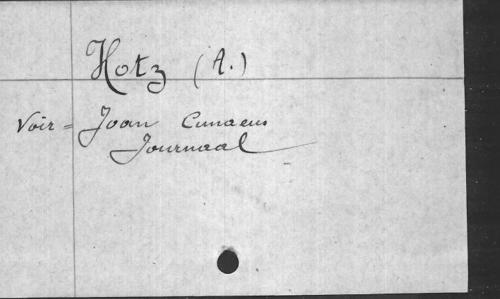 Hotz (A.)
Voir = Joan Cunaeus
Journaal